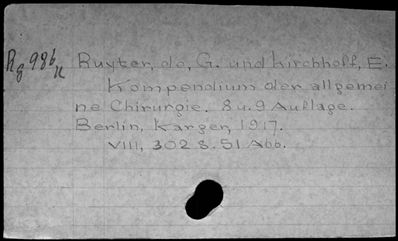 Rg 986 n
Ruyter, de, G. und Kirchhoff, E.
Kompendium der allgemei
ne Chirurgie. 8 u. 9 Auflage.
Berlin, Karger, 1917.
VIII, 302 S. 51 Abb.